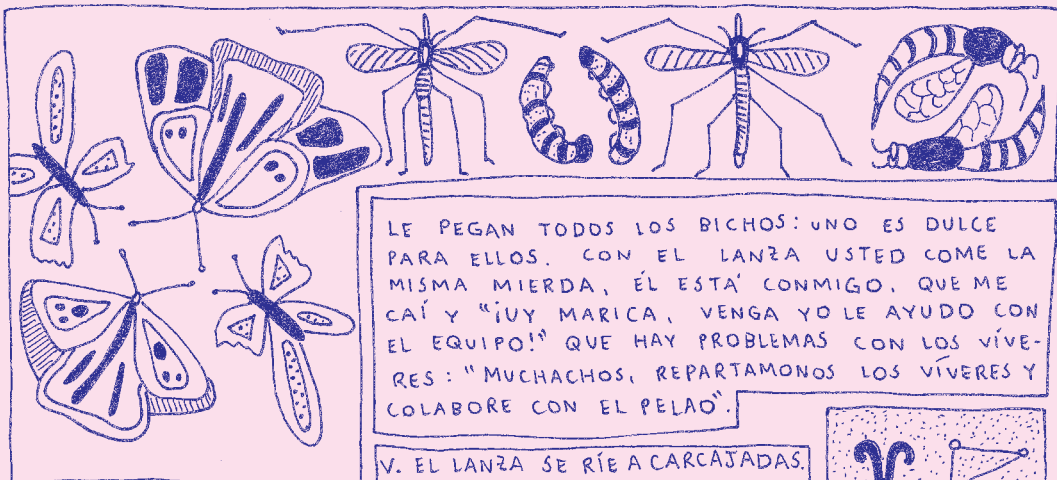 LE PEGAN TODOS LOS BICHOS: UNO ES DULCE
PARA ELLOS. CON EL LANZA USTED COME LA
MISMA MIERDA, ÉL ESTÁ CONMIGO, QUE ME
CAÍ Y "¡UY MARICA, VENGA YO LE AYUDO CON
EL EQUIPO!" QUE HAY PROBLEMAS CON LOS VÍVE-
RES: "MUCHACHOS, REPARTAMONOS LOS VÍVERES Y
COLABORE CON EL PELAO".
V. EL LANZA SE RÍE A CARCAJADAS.